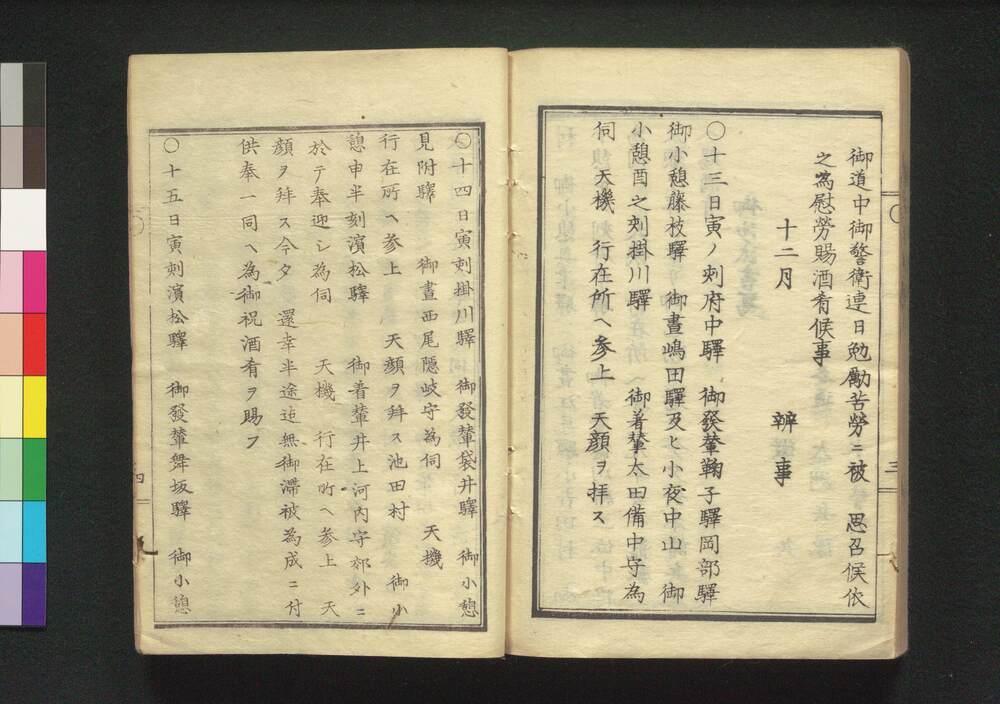 御道中御警衛連日勉勵苦勞ニ被　思召候依
之為慰勞賜酒肴候事
十二月　　　　　辨事
〇十三日寅ノ刻府中驛　御發輦鞠子驛岡部驛
御小憩藤枝驛　御晝嶋田驛及ヒ小夜中山　御
小憩酉之刻掛川驛　御着輦太田備中守為
伺天機　行在所ヘ参上　天顔ヲ拝ス
三
〇十四日寅刻掛川驛　御發輦袋井驛　御小憩
見附驛　御晝西尾隠岐守為伺　天機
行在所ヘ参上　天顔ヲ拜ス池田村　御小
憩申半刻濱松驛　御着輦井上河内守郊外ニ
於テ奉迎シ為伺　天機　行在所ヘ参上　天
顔ヲ拜ス今夕　還幸半途迠無御滞被為成ニ付
供奉一同ヘ為御祝酒肴ヲ賜フ
〇十五日寅刻濱松驛　御發輦舞坂驛　御小憩
四